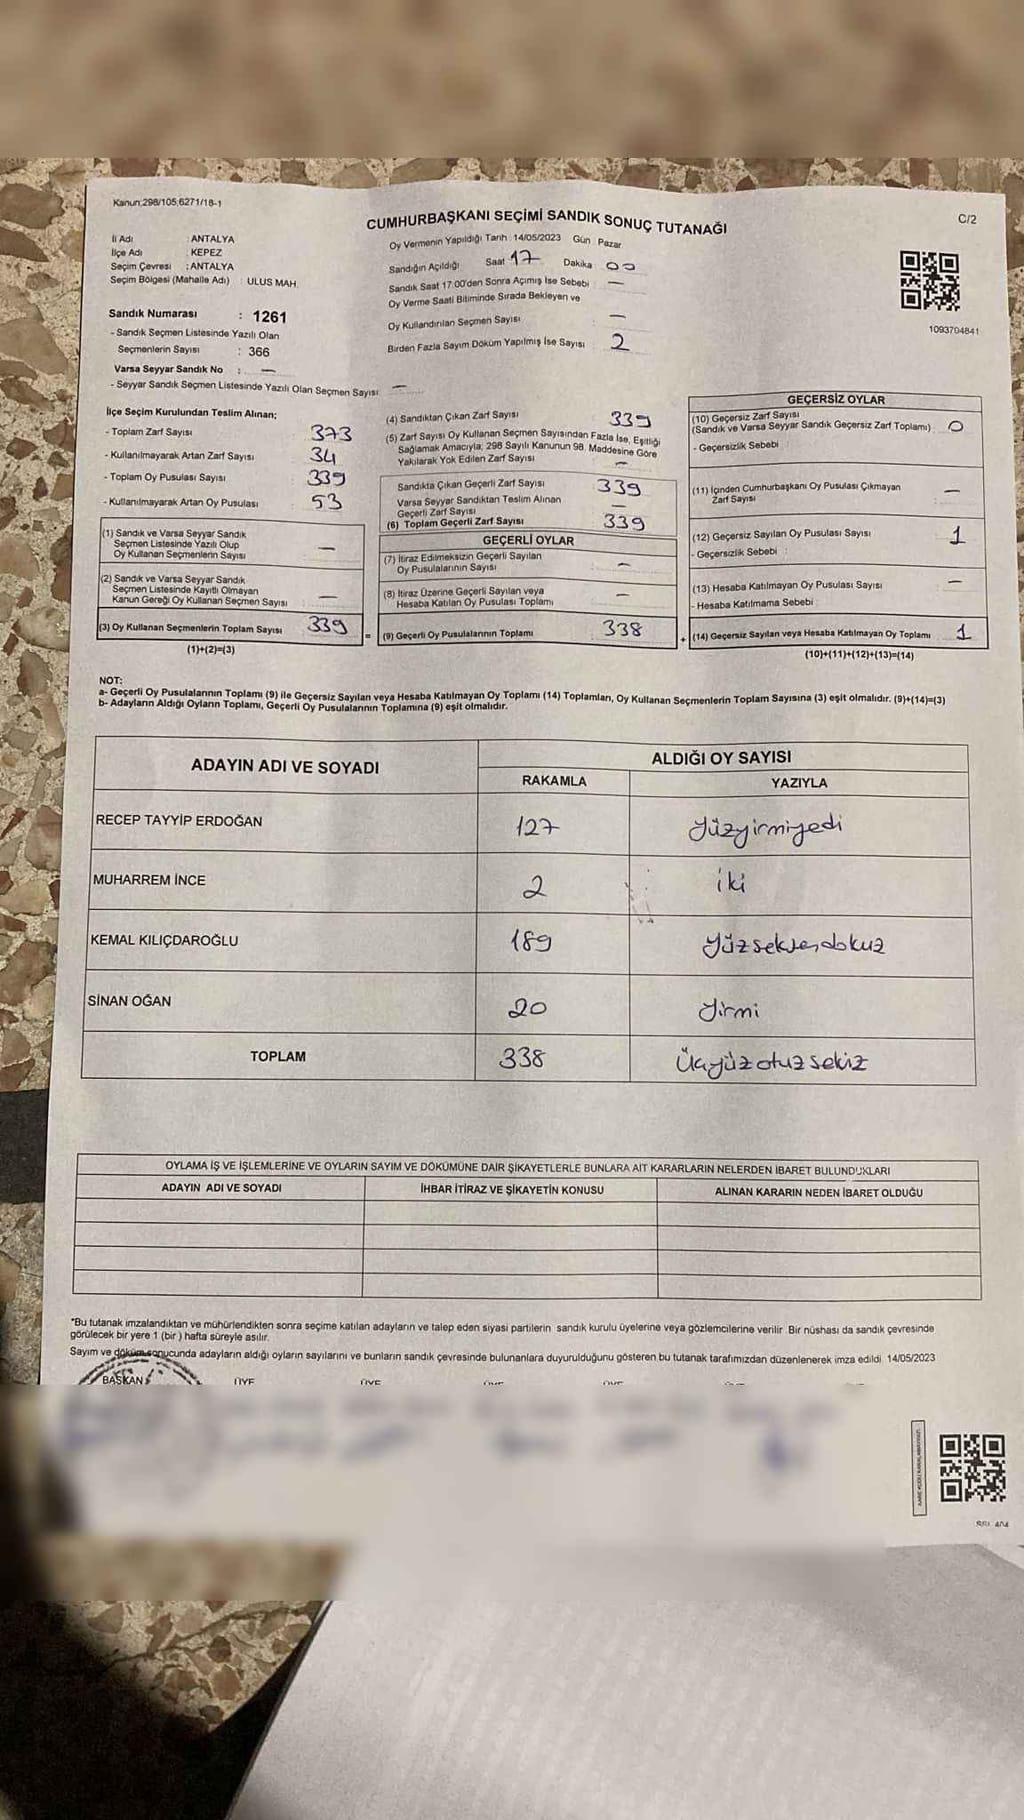 Kanun;298/105;6271/18-1
C/2
CUMHURBAŞKANI SEÇİMİ SANDIK SONUÇ TUTANAĞI
İl Adı : ANTALYA
İlçe Adı : KEPEZ
Seçim Çevresi : ANTALYA
Seçim Bölgesi (Mahalle Adı) : ULUS MAH.
Oy Vermenin Yapıldığı Tarih : 14/05/2023 Gün : Pazar
Sandığın Açıldığı Saat 17 Dakika 00
Sandık Saat 17:00'den Sonra Açımış İse Sebebi : —
Oy Verme Saati Bitiminde Sırada Bekleyen ve
Oy Kullandırılan Seçmen Sayısı : —
Birden Fazla Sayım Döküm Yapılmış İse Sayısı : 2
1093704841
Sandık Numarası : 1261
- Sandık Seçmen Listesinde Yazılı Olan
Seçmenlerin Sayısı : 366
Varsa Seyyar Sandık No : —
- Seyyar Sandık Seçmen Listesinde Yazılı Olan Seçmen Sayısı: —
İlçe Seçim Kurulundan Teslim Alınan;
- Toplam Zarf Sayısı 373
- Kullanılmayarak Artan Zarf Sayısı 34
- Toplam Oy Pusulası Sayısı 339
- Kullanılmayarak Artan Oy Pusulası 53
(1) Sandık ve Varsa Seyyar Sandık
Seçmen Listesinde Yazılı Olup
Oy Kullanan Seçmenlerin Sayısı —
(2) Sandık ve Varsa Seyyar Sandık
Seçmen Listesinde Kayıtlı Olmayan
Kanun Gereği Oy Kullanan Seçmen Sayısı —
(3) Oy Kullanan Seçmenlerin Toplam Sayısı 339 =
(1)+(2)=(3)
(4) Sandıktan Çıkan Zarf Sayısı 339
(5) Zarf Sayısı Oy Kullanan Seçmen Sayısından Fazla İse, Eşitliği
Sağlamak Amacıyla; 298 Sayılı Kanunun 98. Maddesine Göre
Yakılarak Yok Edilen Zarf Sayısı —
Sandıkta Çıkan Geçerli Zarf Sayısı 339
Varsa Seyyar Sandıktan Teslim Alınan
Geçerli Zarf Sayısı —
(6) Toplam Geçerli Zarf Sayısı 339
GEÇERLİ OYLAR
(7) İtiraz Edilmeksizin Geçerli Sayılan
Oy Pusulalarının Sayısı —
(8) İtiraz Üzerine Geçerli Sayılan veya
Hesaba Katılan Oy Pusulası Toplamı —
(9) Geçerli Oy Pusulalarının Toplamı 338 +
GEÇERSİZ OYLAR
(10) Geçersiz Zarf Sayısı
(Sandık ve Varsa Seyyar Sandık Geçersiz Zarf Toplamı) : 0
- Geçersizlik Sebebi :
(11) İçinden Cumhurbaşkanı Oy Pusulası Çıkmayan
Zarf Sayısı : —
(12) Geçersiz Sayılan Oy Pusulası Sayısı 1
- Geçersizlik Sebebi :
(13) Hesaba Katılmayan Oy Pusulası Sayısı —
- Hesaba Katılmama Sebebi :
(14) Geçersiz Sayılan veya Hesaba Katılmayan Oy Toplamı 1
(10)+(11)+(12)+(13)=(14)
NOT:
a- Geçerli Oy Pusulalarının Toplamı (9) ile Geçersiz Sayılan veya Hesaba Katılmayan Oy Toplamı (14) Toplamları, Oy Kullanan Seçmenlerin Toplam Sayısına (3) eşit olmalıdır. (9)+(14)=(3)
b- Adayların Aldığı Oyların Toplamı, Geçerli Oy Pusulalarının Toplamına (9) eşit olmalıdır.
ADAYIN ADI VE SOYADI ALDIĞI OY SAYISI
RAKAMLA YAZIYLA
RECEP TAYYİP ERDOĞAN 127 yüzyirmiyedi
MUHARREM İNCE 2 iki
KEMAL KILIÇDAROĞLU 189 yüzseksendokuz
SİNAN OĞAN 20 yirmi
TOPLAM 338 Üçyüzotuzsekiz
OYLAMA İŞ VE İŞLEMLERİNE VE OYLARIN SAYIM VE DÖKÜMÜNE DAİR ŞİKAYETLERLE BUNLARA AİT KARARLARIN NELERDEN İBARET BULUNDUKLARI
ADAYIN ADI VE SOYADI İHBAR İTİRAZ VE ŞİKAYETİN KONUSU ALINAN KARARIN NEDEN İBARET OLDUĞU
*Bu tutanak imzalandıktan ve mühürlendikten sonra seçime katılan adayların ve talep eden siyasi partilerin sandık kurulu üyelerine veya gözlemcilerine verilir. Bir nüshası da sandık çevresinde
görülecek bir yere 1 (bir ) hafta süreyle asılır.
Sayım ve döküm sonucunda adayların aldığı oyların sayılarını ve bunların sandık çevresinde bulunanlara duyurulduğunu gösteren bu tutanak tarafımızdan düzenlenerek imza edildi. 14/05/2023
BAŞKAN ÜYE ÜYE ÜYE ÜYE